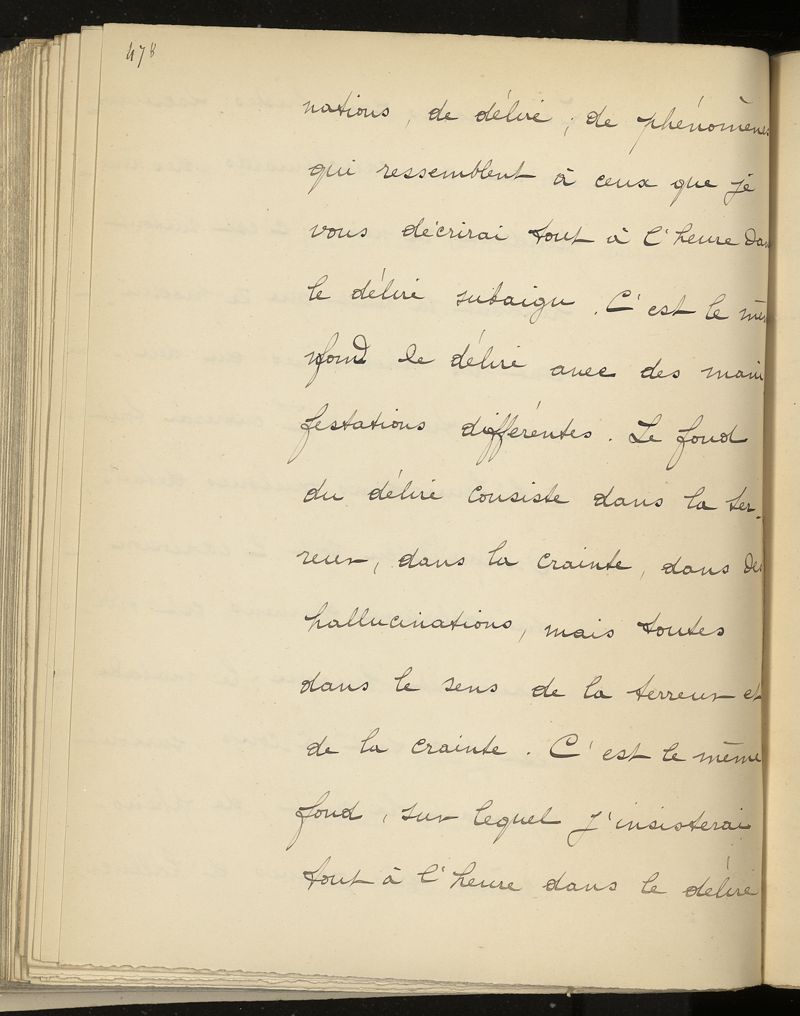 478
nations, de délire, de phénomènes
qui ressemblent à ceux que je
vous décrirai tout à l'heure dans
le délire subaigu. C'est le mêm
fond le délire avec des mani
festations différentes. Le fond
du délire consiste dans la ter-
reur, dans la crainte, dans des
hallucinations, mais toutes
dans le sens de la terreur et
de la crainte. C'est le même
fond, sur lequel j'insisterai
tout à l'heure dans le délire